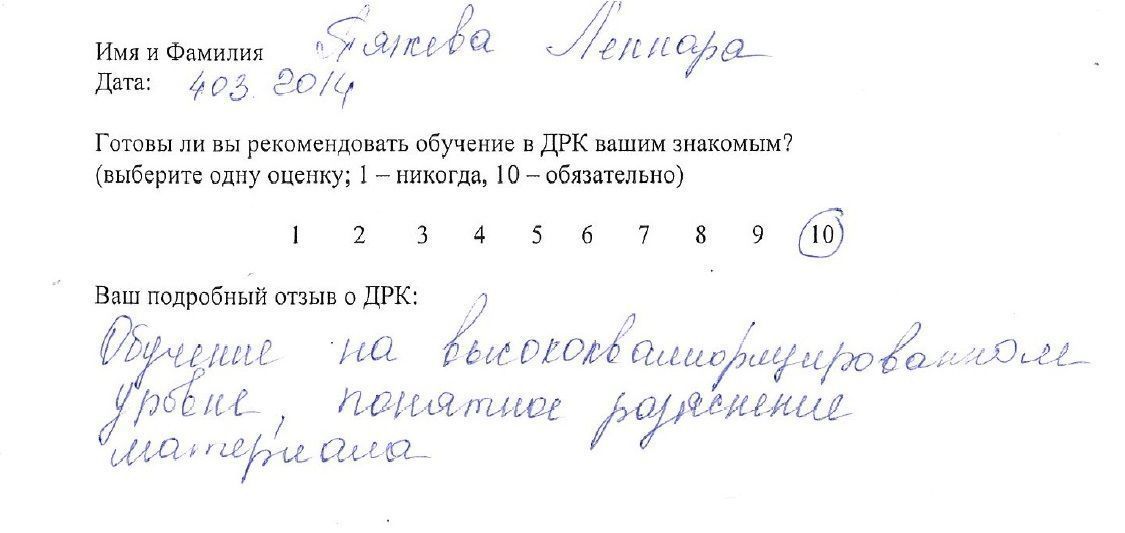 Имя и Фамилия Леннара
Дата: 403. 2014
Готовы ли вы рекомендовать обучение в ДРК вашим знакомым?
(выберите одну оценку; 1 – никогда, 10 – обязательно)
1 2 3 4 5 6 7 8 9 10
Ваш подробный отзыв о ДРК:
Обучение на высококвалифицированном
уровне, понятное разяснение
материала